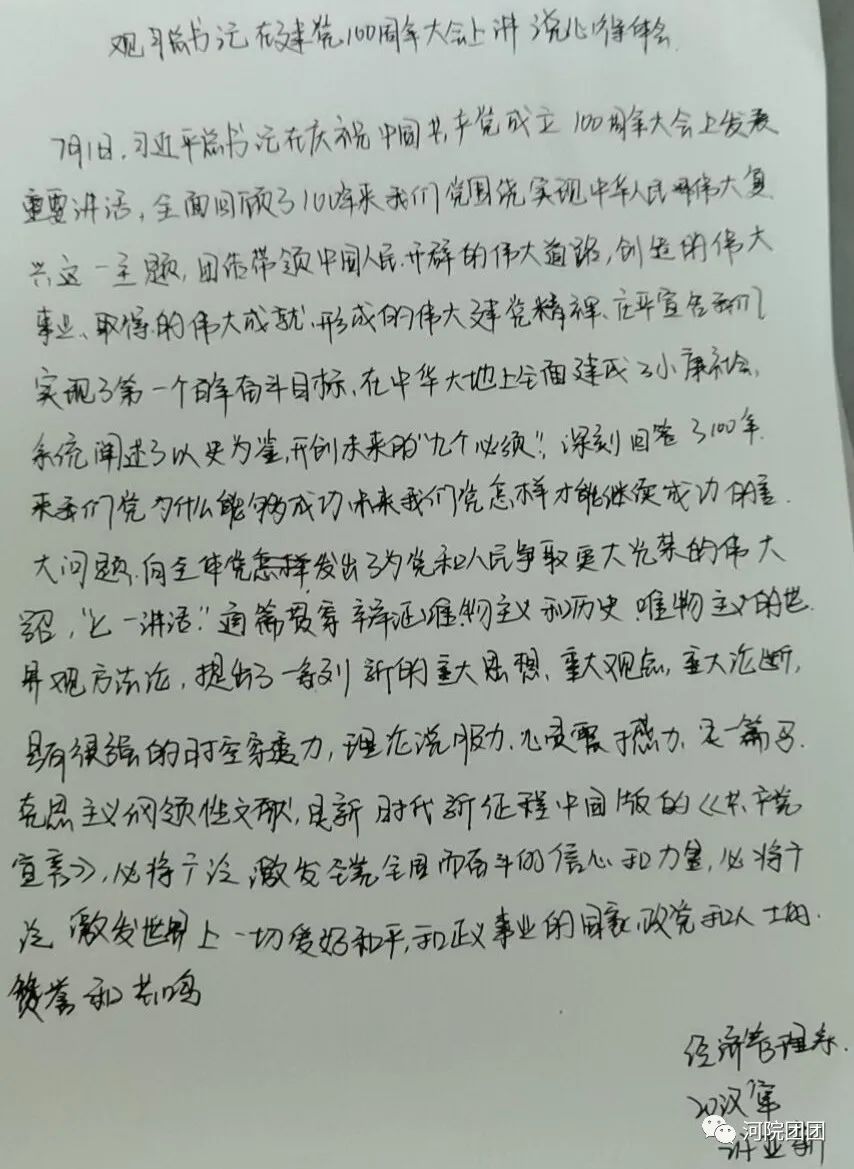 观习总书记在建党100周年大会上讲说心得体会
7月1日，习近平总书记在庆祝中国共产党成立100周年大会上发表
重要讲话，全面回顾了100年来我们党围绕实现中华人民伟大复
兴这一主题，团结带领中国人民开辟的伟大道路，创造的伟大
事业、取得的伟大成就、形成的伟大建党精神、庄严宣告我们
实现了第一个百年奋斗目标，在中华大地上全面建成了小康社会，
系统阐述了以史为鉴，开创未来的"九个必须"，深刻回答了100年
来我们党为什么能够成功未来我们党怎样才能继续成功的重
大问题，向全体党发出了为党和人民争取更大光荣的伟大
"七一讲话"通篇贯穿辩证唯物主义和历史唯物主义的世
界观方法论，提出了一系列新的重大思想，重大观点，重大论断，
具有很强的时空穿透力，理论说服力、心灵震撼力、是一篇马
克思主义纲领性文献，是新时代新征程中国版的《共产党
宣言》，必将广泛激发全党全国而奋斗的信心和力量，必将广
泛激发世界上一切爱好和平，和正义事业的国家，政党和人士的
赞誉和共鸣
经济管理系
20汉军
河院团团